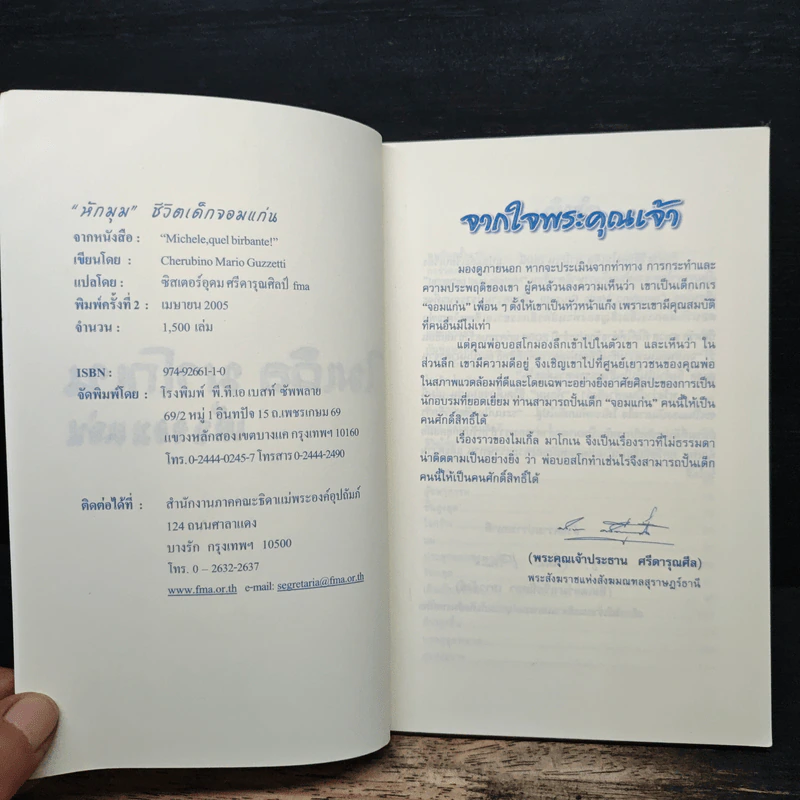 "หักมุม" ชีวิตเด็กจอมแก่น
จากหนังสือ : "Michele,quel birbante!"
เขียนโดย : Cherubino Mario Guzzetti
แปลโดย : ซิสเตอร์อุดม ศรีดารุณศิลป์ fma
พิมพ์ครั้งที่ 2 : เมษายน 2005
จำนวน : 1,500 เล่ม
ISBN : 974-92661-1-0
จัดพิมพ์โดย : โรงพิมพ์ พี.ที.เอ เบสท์ ซัพพลาย
69/2 หมู่ 1 อินทปัจ 15 ถ.เพชรเกษม 69
แขวงหลักสอง เขตบางแค กรุงเทพฯ 10160
โทร. 0-2444-0245-7 โทรสาร 0-2444-2490
ติดต่อได้ที่ : สำนักงานภาคคณะธิดาแม่พระองค์อุปถัมภ์
124 ถนนศาลาแดง
บางรัก กรุงเทพฯ 10500
โทร. 0 – 2632-2637
www.fma.or.th e-mail: segretaria@fma.or.th
จากใจพระคุณเจ้า
มองดูภายนอก หากจะประเมินจากท่าทาง การกระทำและ
ความประพฤติของเขา ผู้คนล้วนลงความเห็นว่า เขาเป็นเด็กเกเร
"จอมแก่น" เพื่อน ๆ ตั้งให้เขาเป็นหัวหน้าแก๊ง เพราะเขามีคุณสมบัติ
ที่คนอื่นมีไม่เท่า
แต่คุณพ่อบอสโกมองลึกเข้าไปในตัวเขา และเห็นว่า ใน
ส่วนลึก เขามีความดีอยู่ จึงเชิญเขาไปที่ศูนย์เยาวชนของคุณพ่อ
ในสภาพแวดล้อมที่ดีและโดยเฉพาะอย่างยิ่งอาศัยศิลปะของการเป็น
นักอบรมที่ยอดเยี่ยม ท่านสามารถปั้นเด็ก "จอมแก่น" คนนี้ให้เป็น
คนศักดิ์สิทธิ์ได้
เรื่องราวของไมเกิ้ล มาโกเน จึงเป็นเรื่องราวที่ไม่ธรรมดา
น่าติดตามเป็นอย่างยิ่ง ว่า พ่อบอสโกทำเช่นไรจึงสามารถปั้นเด็ก
คนนี้ให้เป็นคนศักดิ์สิทธิ์ได้
(พระคุณเจ้าประธาน ศรีดารุณศีล)
พระสังฆราชแห่งสังฆมณฑลสุราษฎร์ธานี